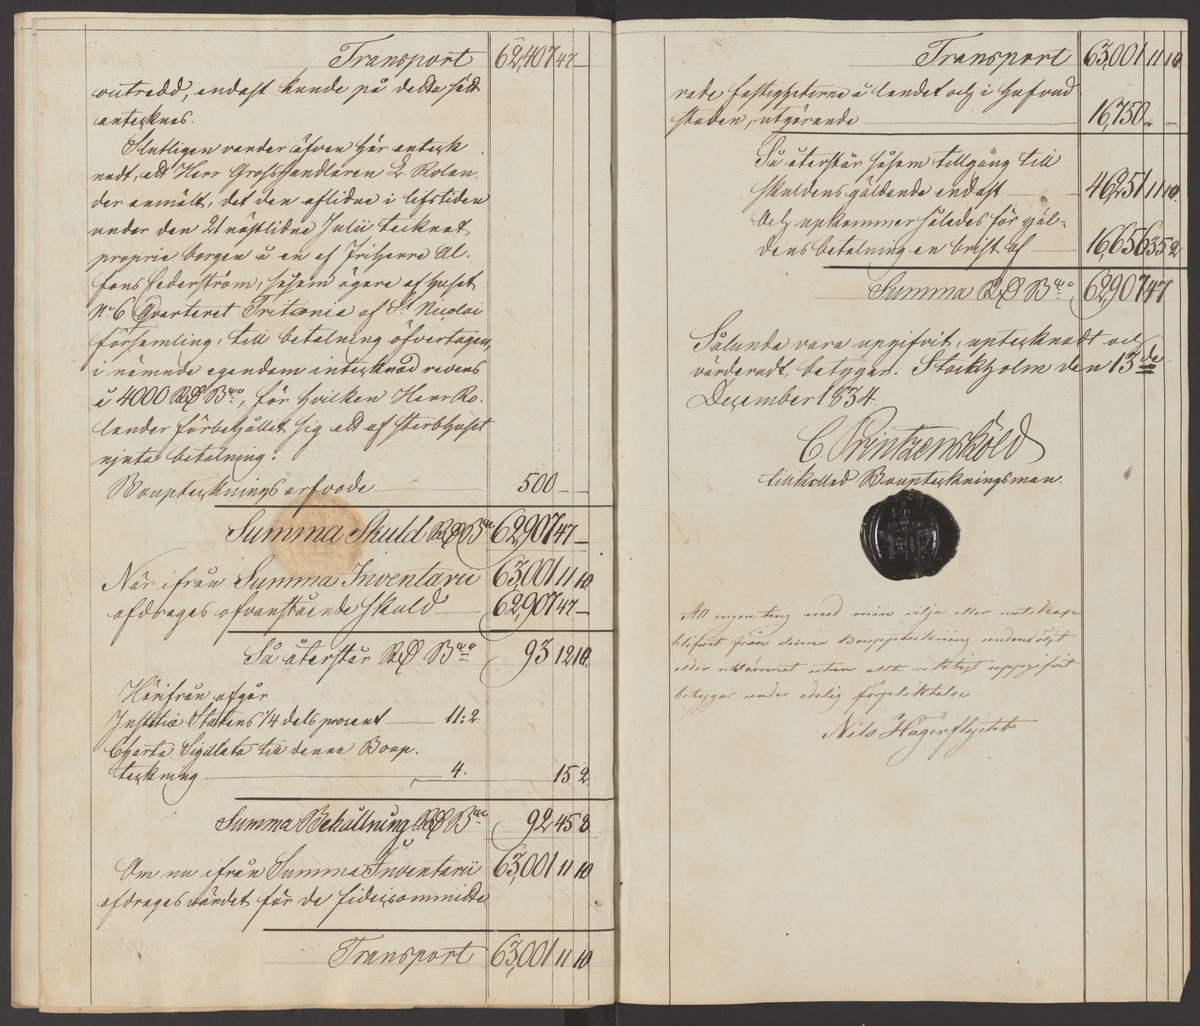 Transport 62,407 47 –
outredd, endast kunde på detta sätt
antecknas.
Slutligen warder äfven här anteck
nadt, att Herr Grosshandlaren L. Rolan
der anmält, det den aflidne i lifstiden
under den 21 nästlidne Julii tecknat
proprie borgen å en af Friherre Al-
fons Cederström, såsom ägare af huset
No 6 Qvarteret Tritonia af St Nicolai
församling, till betalning öfvertagen,
i nämnde egendom intecknad revers
å 4000 RD Bco, för hvilken Herr Ro-
lander förbehållit sig att af Sterbhuset
njuta betalning.
Bouptecknings arfvode 500 – –
Summa Skuld RD Bco 62,907 47 –
När ifrån Summa Inventarii 63,001 11 10
afdrages ofvanstående skuld 62,907 47 –
Så återstår RD Bco 93 12 10
Härifrån afgår
Justitiæ Statens 1/4 dels procent 11: 2
Charta Sigillata till denna Boup-
teckning 4. 15 2
Summa Behållning RD Bco 92 45 8
Om nu ifrån Summa Inventarii 63,001 11 10
afdrages värdet för de fideicommitte
Transport 63,001 11 10
Transport 63,001 11 10
rade fastigheterne å landet och i hufvud
staden, utgörande 16,750 – –
Så återstår såsom tillgång till
skuldens gäldande endast 46,251 11 10
Och uppkommer således för gäl-
dens betalning en brist af 16,656 35 2
Summa RD Bco 62,907 47
Sålunda vara uppgifvit, upptecknadt och
värderadt, betygar. Stockholm den 13de
December 1834.
C Printzensköld
tillkallad Bouppteckningsman.
Att ingenting med min vilja eller vetskap
blifvit från denna Bouppteckning undandöljt
eller utlämnat utan allt riktigt uppgifvit
betygar under edelig förpliktelse
Nils Hägerflycht